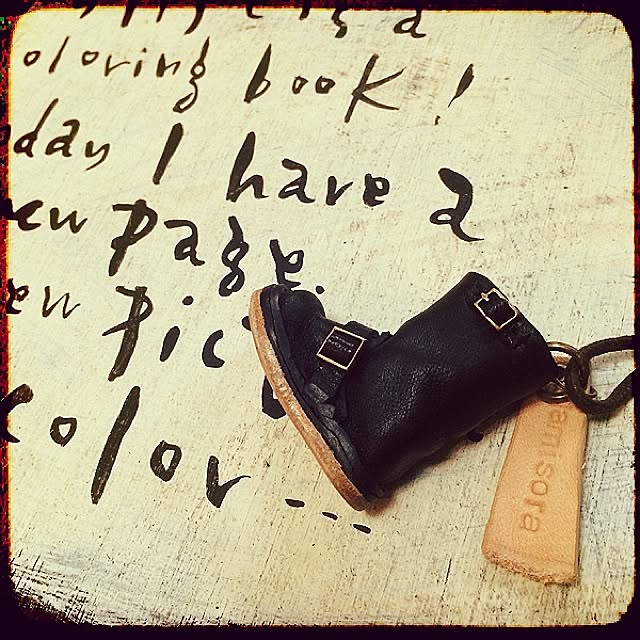 is a
oloring book !
day I have a
ew page.
ew pic
color ...
amisora